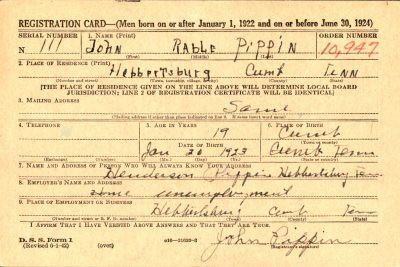 REGISTRATION CARD—(Men born on or after January 1, 1922 and on or before June 30, 1924)
SERIAL NUMBER 1. NAME (Print) ORDER NUMBER
N 111 John Rable Pippin 10,947
(First) (Middle) (Last)
2. PLACE OF RESIDENCE (Print)
Hebbertsburg Cumb Tenn
(Number and street) (Town, township, village, or city) (County) (State)
[THE PLACE OF RESIDENCE GIVEN ON THE LINE ABOVE WILL DETERMINE LOCAL BOARD
JURISDICTION; LINE 2 OF REGISTRATION CERTIFICATE WILL BE IDENTICAL]
3. MAILING ADDRESS
Same
[Mailing address if other than place indicated on line 2. If same insert word same]
4. TELEPHONE 5. AGE IN YEARS 6. PLACE OF BIRTH
19 Cumb
DATE OF BIRTH
Jan 20 1923 Cumb Tenn
(Exchange) (Number) (Mo.) (Day) (Yr.) (Town or county) (State or country)
7. NAME AND ADDRESS OF PERSON WHO WILL ALWAYS KNOW YOUR ADDRESS
Henderson Pippin Hebbertsburg Tenn
8. EMPLOYER'S NAME AND ADDRESS
unemployment
9. PLACE OF EMPLOYMENT OR BUSINESS
Hebbertsburg Cumb Tenn
(Number and street or R. F. D. number) (Town) (County) (State)
I AFFIRM THAT I HAVE VERIFIED ABOVE ANSWERS AND THAT THEY ARE TRUE.
D. S. S. Form 1
(Revised 6-9-42) (over) John Pippin